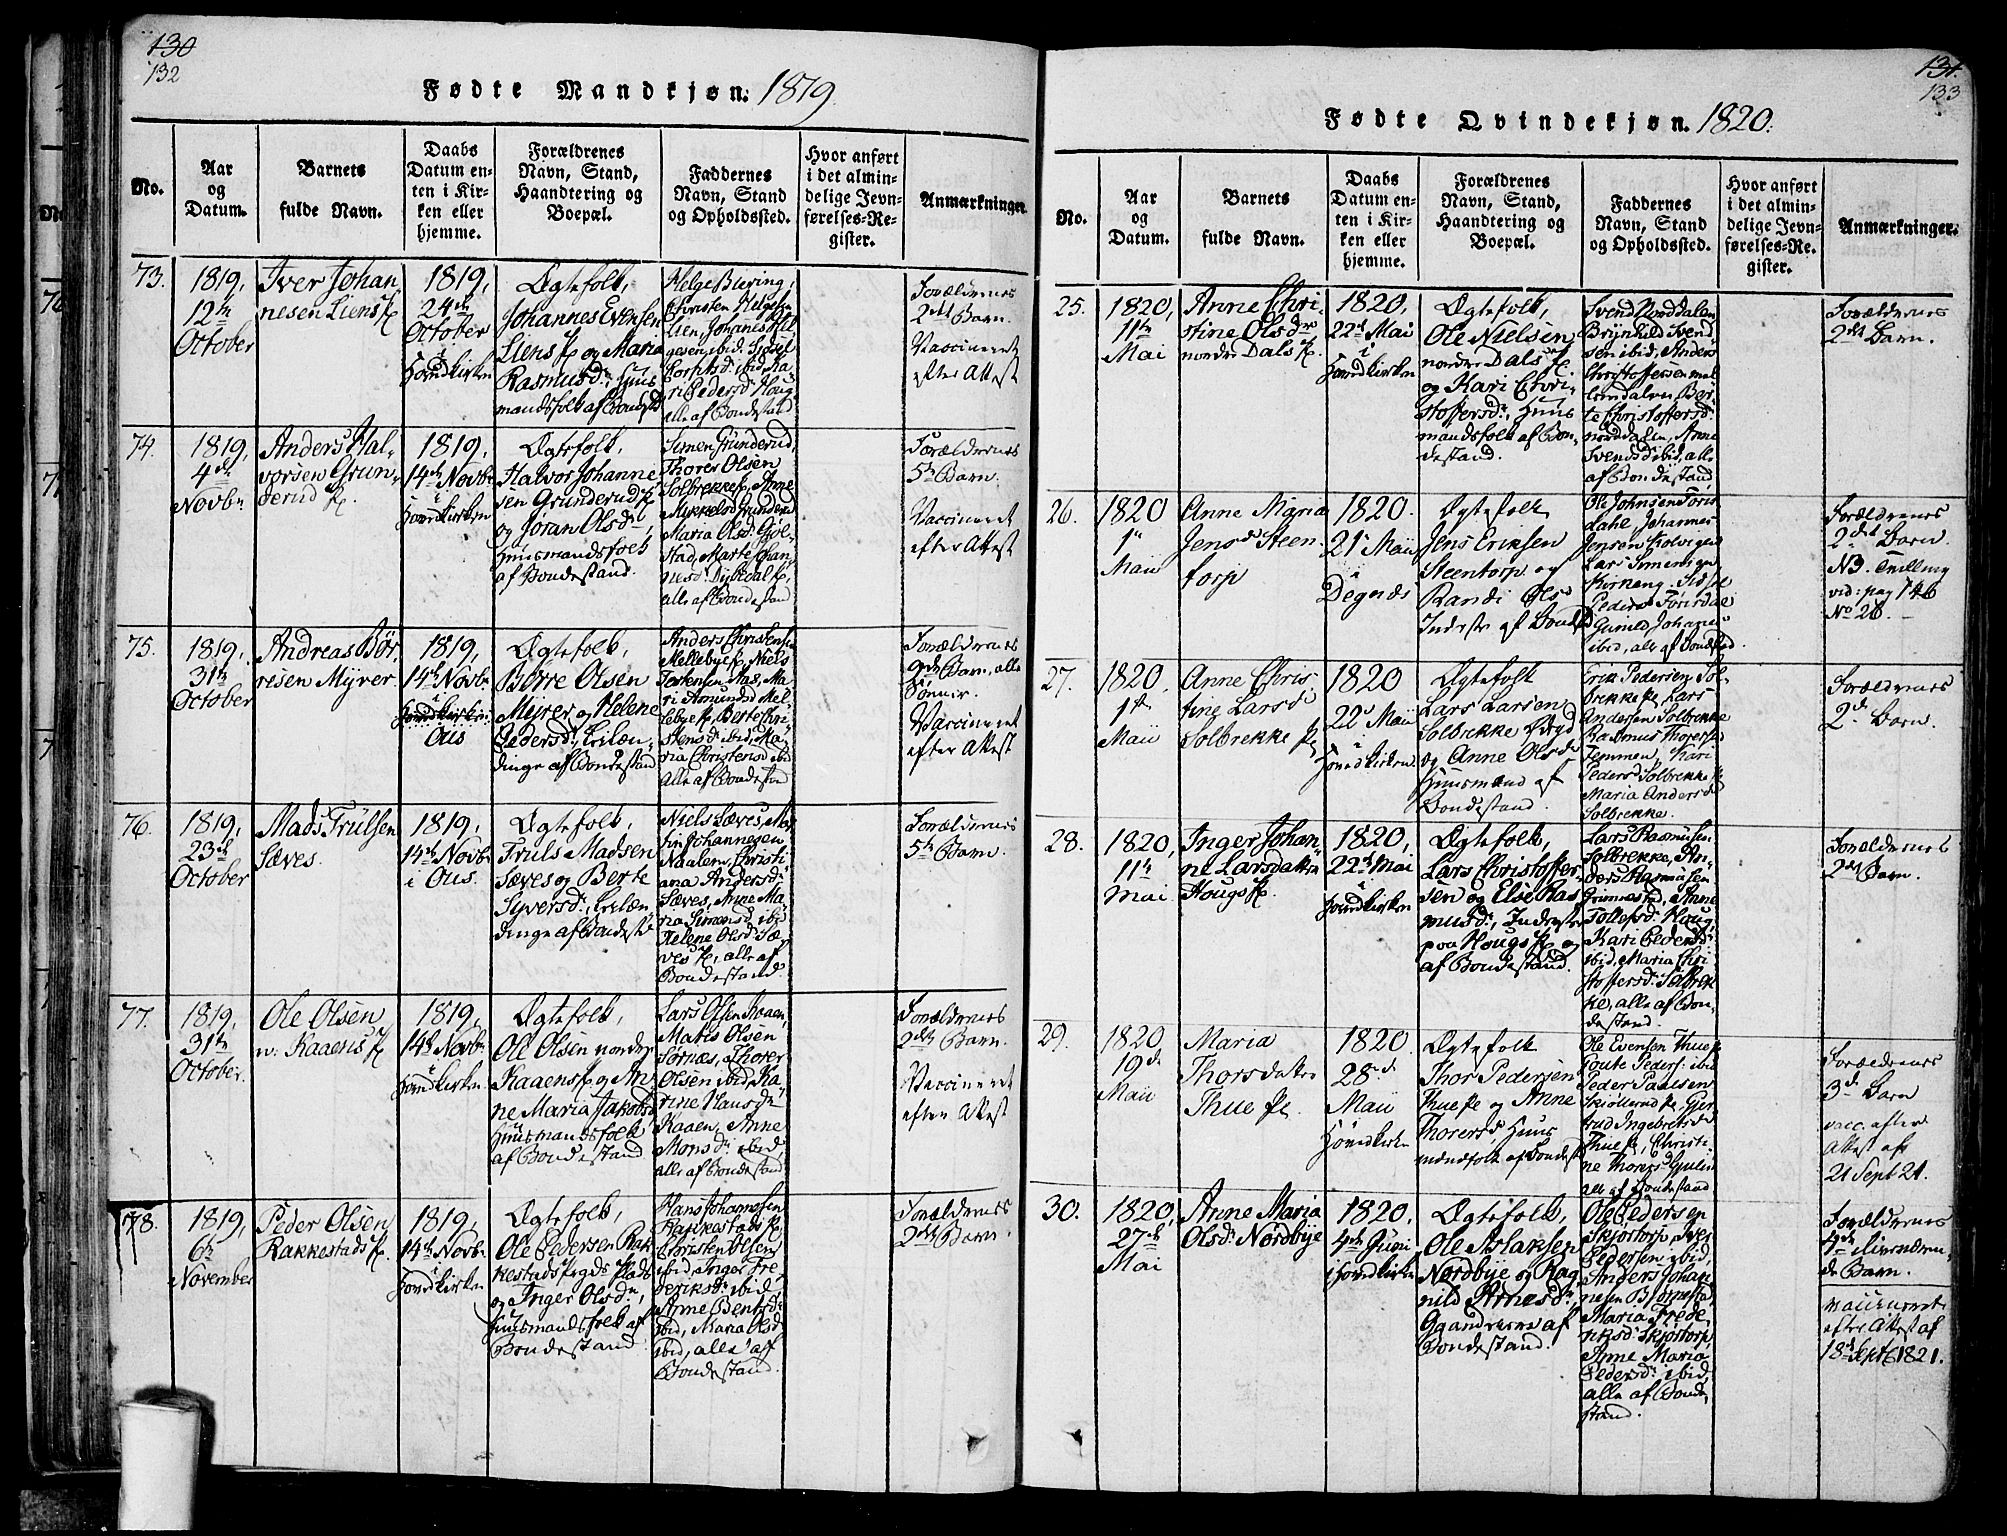 130
132
Fødte Mandkjøn. 1819
No.
Aar
og
Datum.
Barnets
fulde Navn.
Daabs
Datum en-
ten i Kir-
ken eller
hjemme.
Forældrenes
Navn, Stand,
Haandtering og
Boepæl.
Faddernes
Navn, Stand
og Opholdssted.
Hvor anført
i det almin-
delige Jevn-
førelses-Re-
gister.
Anmærkninger
73.
1819,
12te
October
Iver Johan
nesen Liens
1819,
24de
October
i
Hovedkirken
Ægtefolk,
Johannes Evensen
Liens og Maria
Rasmusd:, Huus
mandsfolk af Bondest
Helge Buring,
Christen Helgesen
Lien, Johanes Hel
gesen ibid:
alle af Bondestand
Forældrenes
2det Barn.
Vaccineret
efter Attest
74.
1819,
4de
Novbr
Anders Hal-
vorsen Grun-
derud
1819,
14de Novbr
i
Hovedkirken
Ægtefolk,
Halvor Johanne
sen Grunderud
og Jøran Olsd:,
Huusmandsfolk
af Bondestand.
Simen Grunderud,
Thorer Olsen
Solbrekke, Anne
Mikkelsd Grunderud
Maria Olsd: Gjøl-
stad, Marte Johan-
nesd:
alle af Bondestand
Forældrenes
5te Barn.
Vaccineret
efter Attest
75.
1819,
31te
October
Andreas Bør-
resen Myrer
1819,
14de Novb.
i
Hovedkirken
Ous
Ægtefolk,
Børre Olsen
Myrer og Helene
Pedersd:, Leilæn-
dinge af Bondestand
Anders Christensen
Mellebye, Niels
Torstensen Aas, Ma-
ri Amundsd Mel-
lebye, Berte Chri-
stensd: ibid, Ma-
ria Christensd ibid
Alle af Bondestand
Forældrenes
9de Barn, alle
Sønner.
Vaccineret
efter Attest
76.
1819,
23de
October
Mads Trulsen
Sæves.
1819,
14de Novbr
i Ous.
Ægtefolk,
Truls Madsen
Sæves og Berte
Syversd:, Leilæn
dinge af Bondest
Niels Sæves, Mor
tin Johannesen
Naalem, Christi-
ana Andersd:
Sæves, Anne Ma-
ria Simensd, ibid
Helene Olsd: Sæ-
ves, alle af
Bondestand.
Forældrenes
5te Barn.
77.
1819,
31te
October.
Ole Olsen
n: Kaaens
1819,
14de Novbr
i
Hovedkirken
Ægtefolk,
Ole Olsen nordre
Kaaens og An
ne Maria Jakobsd
Huusmandsfolk
af Bondestand
Lars Olsen Kaaen,
Matis Olsen
Sørnæs, Thorer
Olsen ibid, Ka-
trine Hansd:
Kaaen, Anne
Monsd: ibid,
alle af Bondestand
Forældrenes
2det Barn.
Vaccineret
efter Attest
78.
1819,
6te
November
Peder Olsen
Rakkestads
1819,
14de Novbr
i
Hovedkirken
Ægtefolk,
Ole Pedersen Rak
kestads Pladse
og Inger Olsd:,
Huusmandsfolk af
Bondestand
Hans Johannesen
Rakkestads
Christen Olsen
ibid, Inger Fre
deriksd: ibid,
Anne Bentsd:
ibid, Maria Olsd
ibid, alle af
Bondestand.
Forældrenes
2det Barn.
131.
133
Fødte Qvindekjøn. 1820.
No.
Aar
og
Datum.
Barnets
fulde Navn.
Daabs
Datum en-
ten i Kir-
ken eller
hjemme.
Forældrenes
Navn, Stand,
Haandtering og
Boepæl.
Faddernes
Navn, Stand
og Opholdssted.
Hvor anført
i det almin-
delige Jevn-
førelses-Re-
gister.
Anmærkninger.
25.
1820,
11te
Mai
Anne Chri-
stine Olsdr
nordre Dals
1820,
22de Mai
i
Hovedkirken
Ægtefolk,
Ole Nielsen
nordre Dals
og Kari Chri-
stoffersd:, Huus
mandsfolk af Bon-
destand.
Svend Norddalen,
Brynhild Svend
sen ibid, Anders
Christoffersen mel
lemdalen, Ber-
te Christoffersd:
norddalen, Anne
Svensd: ibid, alle
af Bondestand
Forældrenes
2det Barn.
26.
1820
1te
Maii
Anne Maria
Jensd Steen
torp
1820.
21de Maii
i
Degnæs
Ægtefolk
Jens Eriksen
Steentorp og
Randi Olsd
Inderste af Bondest
Ole Johnsen
dahl Johannes
Jensen
Lars Simensen
Peders
ibid, alle af Bondestad
Forældrenes
2det Barn
NB. Tvilling
vid: pag 146
No 26.
27.
1820,
1te
Maii
Anne Chris
tine Larsd:
Solbrekke
1820
22de Maii
i
Hovedkirken
Ægtefolk
Lars Larsen
Solbrekke
og Anne Olsd:
Huusmænd af
Bondestand.
Erik Pedersen Sol-
brekke, Lars
Andersen Solbrekke
Rasmus Thoresen
Temmen, Kari
Pedersd Solbrekke
Maria Andersd
Solbrekke.
Forældrenes
2de Barn.
28.
1820,
11te
Mai
Inger Johan-
ne Larsdatter
Hougs
1820,
22de Mai
i
Hovedkirken
Ægtefolk,
Lars Christoffer-
sen og Else Ras
musd:, Inderster
paa Hougs og
af Bondestand.
Lars Rasmusen
Solbrekke, An-
ders Rasmusen
Grimestad, Anne
Tollefsd: Houg,
Kari Pedersd:
ibid, Maria Chri
stoffersd: Solbrek
ke, alle af Bon-
destand.
Forældrenes
2det Barn.
29.
1820
19de
Maii
Maria
Thorsdatter
Thue
1820.
28de
Maii
Hovedkirken
Ægtefolk
Thor Pedersen
Thue og Anne
Thorersd, Huus
mændfolk af Bondest
Ole Evensen Thue
Peders: ibid
Peder Paulsen
Skjøllerud, Gjer
trud Ingebretsd:
Thue, Christi-
ne Thorersd
alle af Bondestand
Forældrenes
3de Barn
vacc. efter
Attest af
21 Sept 21.
30.
1820,
27de
Mai
Anne Maria
Olsd: Nordbye
1820,
4de Juni
i Hovedkirken
Ægtefolk,
Ole Aslaksen
Nordbye og Rag
nild Arnesd:,
Gaardmænd af
Bondestand.
Ole Pedersen
Skjøstorp, Iver
Pedersen ibid,
Anders Johan-
nesen Bjørnestad,
Maria Frede-
riksd: Skjøstorp,
Anne Maria
Pedersd: ibid,
alle af Bonde-
stand.
Forældrenes
4de
de Barn.
vaccineret
efter Attest af
18de Sept 1821.